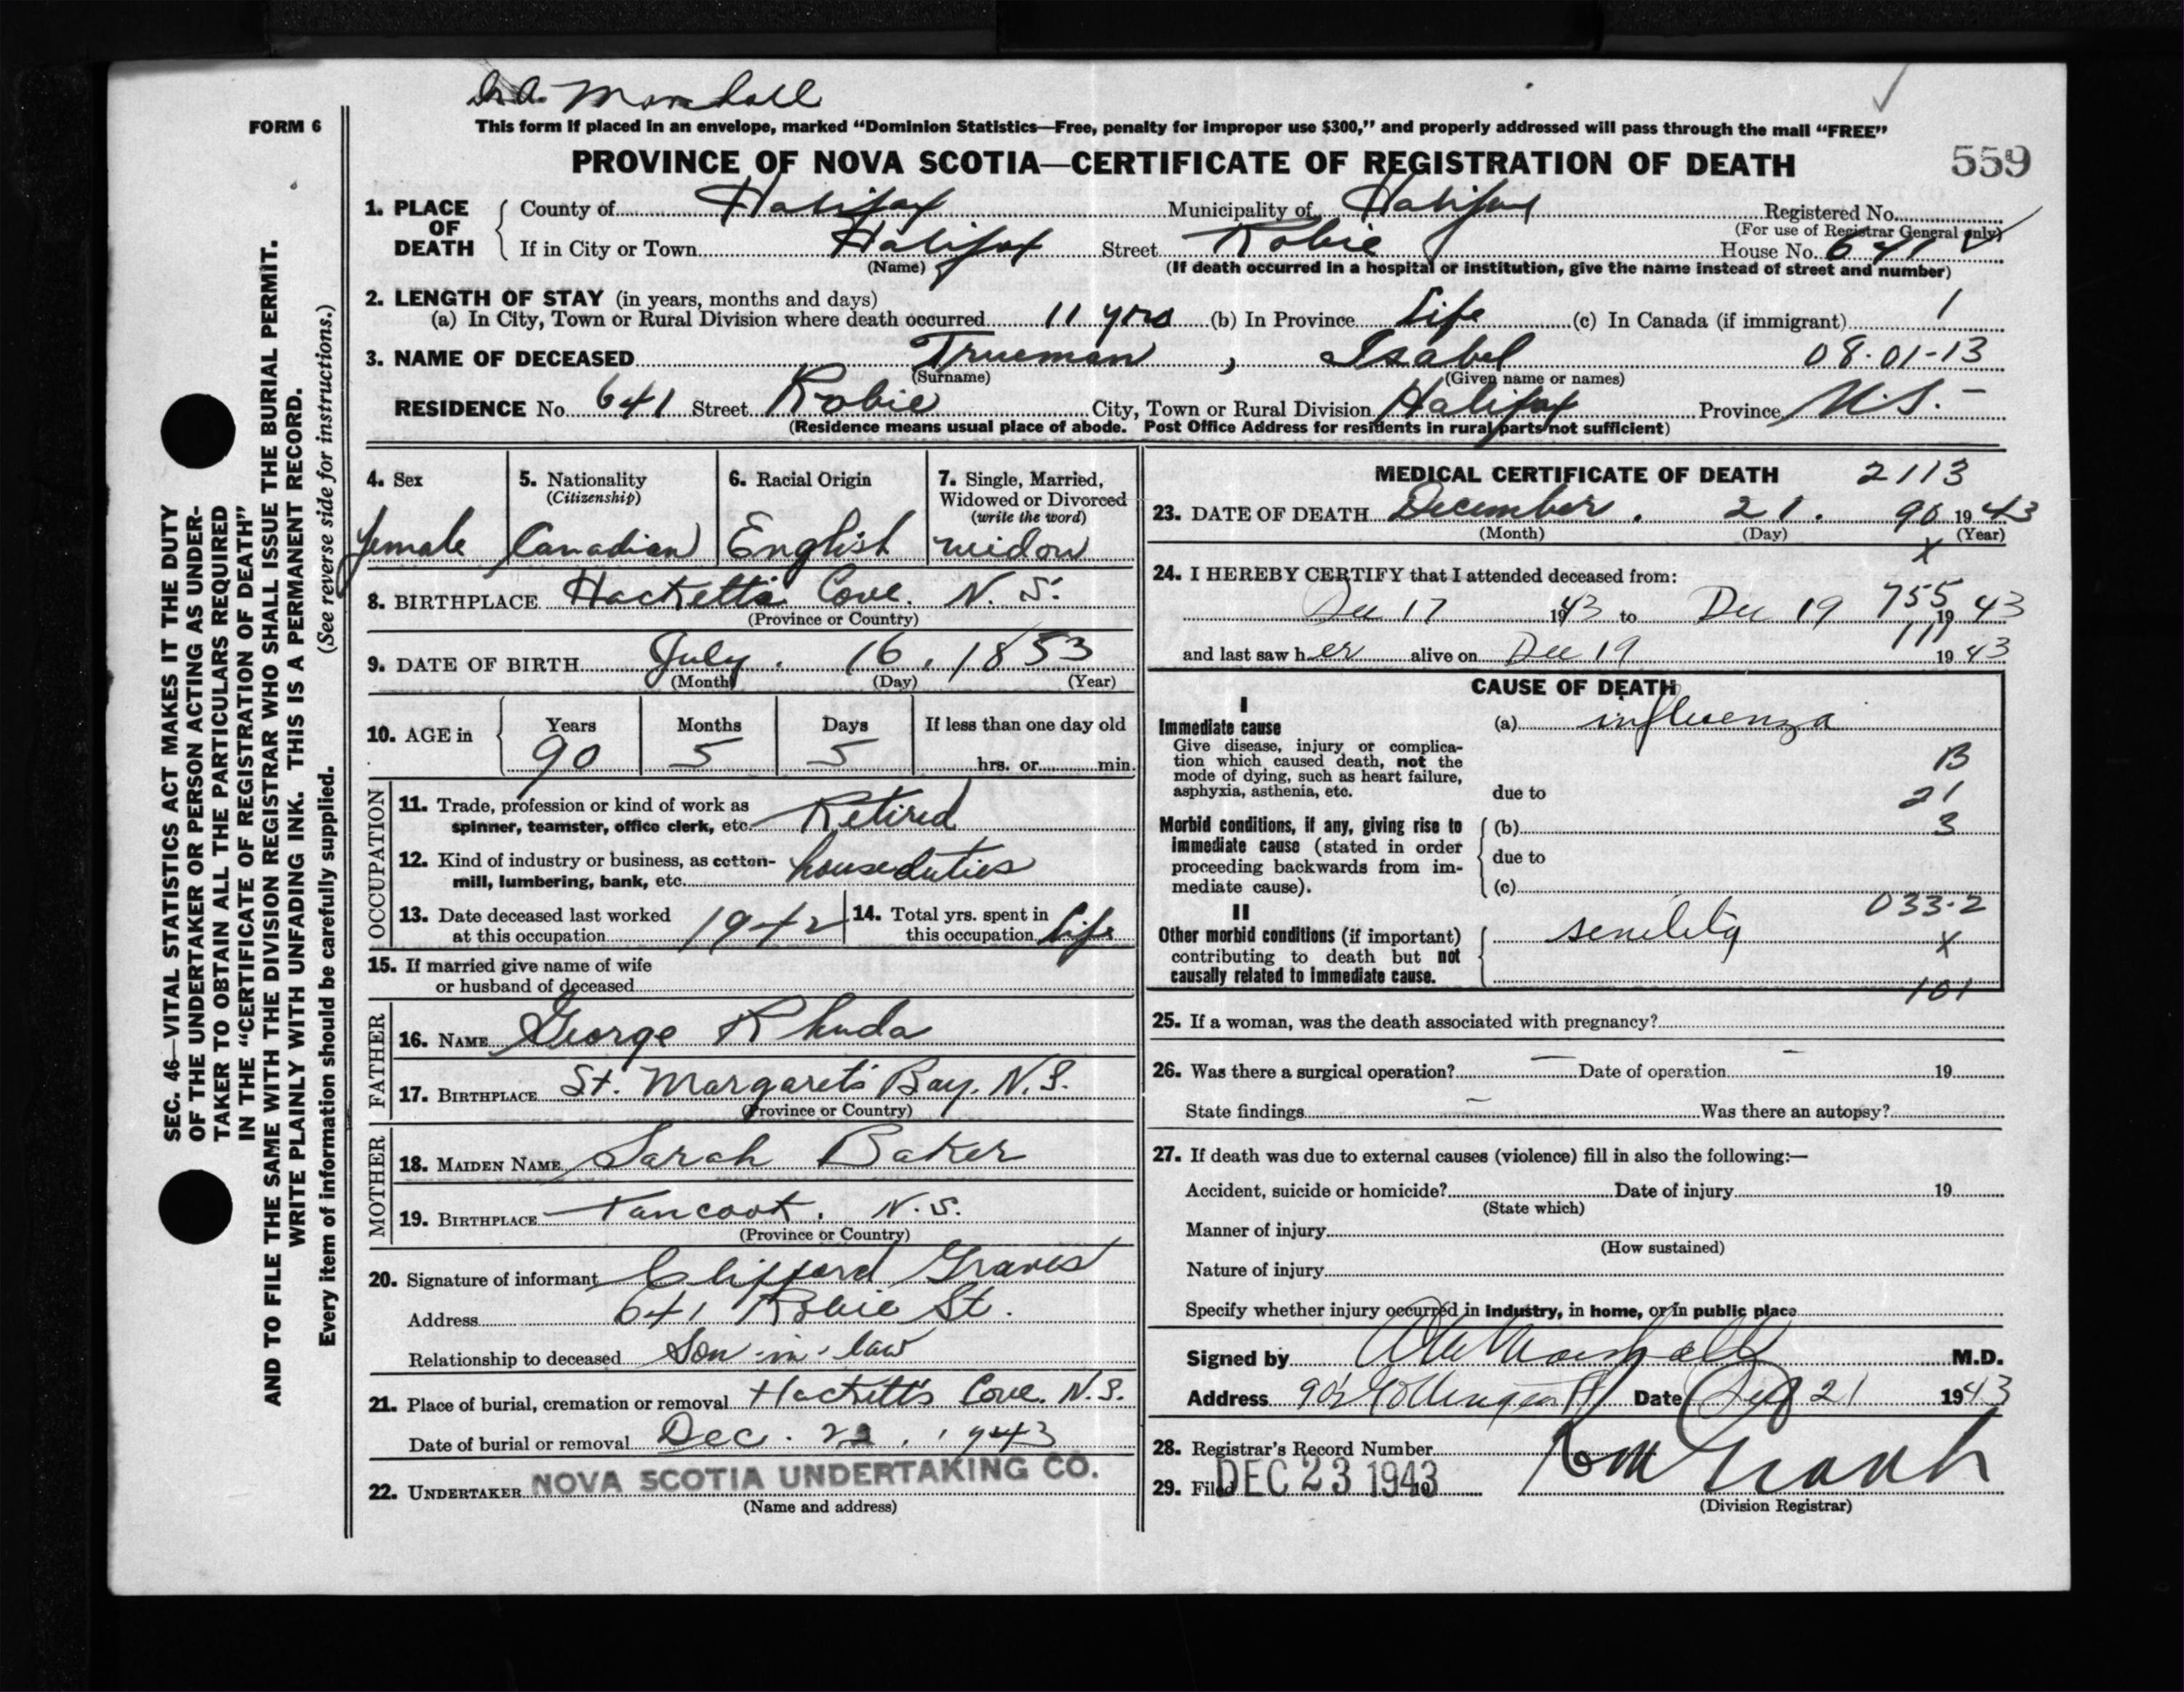 Dr. A. Marshall
FORM 6
This form if placed in an envelope, marked "Dominion Statistics—Free, penalty for improper use $300," and properly addressed will pass through the mail "FREE"
PROVINCE OF NOVA SCOTIA—CERTIFICATE OF REGISTRATION OF DEATH
559
1. PLACE OF DEATH
County of Halifax Municipality of Halifax Registered No.
(For use of Registrar General only)
If in City or Town Halifax Street Robie House No. 641
(Name) (If death occurred in a hospital or institution, give the name instead of street and number)
2. LENGTH OF STAY (in years, months and days)
(a) In City, Town or Rural Division where death occurred 11 yrs (b) In Province Life (c) In Canada (if immigrant) /
3. NAME OF DECEASED Trueman , Isabel 08-01-13
(Surname) (Given name or names)
RESIDENCE No. 641 Street Robie City, Town or Rural Division Halifax Province N.S.
(Residence means usual place of abode. Post Office Address for residents in rural parts not sufficient)
4. Sex
female
5. Nationality
(Citizenship)
Canadian
6. Racial Origin
English
7. Single, Married,
Widowed or Divorced
(write the word)
widow
8. BIRTHPLACE Hackett's Cove. N.S.
(Province or Country)
9. DATE OF BIRTH July . 16 , 1853
(Month) (Day) (Year)
10. AGE in
Years Months Days If less than one day old
90 5 5 hrs. or min.
OCCUPATION
11. Trade, profession or kind of work as
spinner, teamster, office clerk, etc. Retired
12. Kind of industry or business, as cotton-
mill, lumbering, bank, etc. house duties
13. Date deceased last worked
at this occupation 1942
14. Total yrs. spent in
this occupation Life
15. If married give name of wife
or husband of deceased
FATHER
16. NAME George Rhuda
17. BIRTHPLACE St. Margaret's Bay, N.S.
(Province or Country)
MOTHER
18. MAIDEN NAME Sarah Baker
19. BIRTHPLACE Tancook. N.S.
(Province or Country)
20. Signature of informant Clifford Graves
Address 641 Robie St.
Relationship to deceased Son-in-law
21. Place of burial, cremation or removal Hackett's Cove. N.S.
Date of burial or removal Dec. 22, 1943
22. UNDERTAKER NOVA SCOTIA UNDERTAKING CO.
(Name and address)
MEDICAL CERTIFICATE OF DEATH 2113
23. DATE OF DEATH December . 21 . 90 1943
(Month) (Day) (Year)
x
24. I HEREBY CERTIFY that I attended deceased from:
Dec 17 1943 to Dec 19 755 1943
111
and last saw her alive on Dec 19 1943
CAUSE OF DEATH
I
Immediate cause (a) influenza
Give disease, injury or complica-
tion which caused death, not the
mode of dying, such as heart failure,
asphyxia, asthenia, etc. due to
B
21
3
Morbid conditions, if any, giving rise to
immediate cause (stated in order
proceeding backwards from im-
mediate cause).
(b)
due to
(c)
033-2
II
Other morbid conditions (if important)
contributing to death but not
causally related to immediate cause.
senility
x
101
25. If a woman, was the death associated with pregnancy?
26. Was there a surgical operation? — Date of operation — 19
State findings — Was there an autopsy?
27. If death was due to external causes (violence) fill in also the following:—
Accident, suicide or homicide? Date of injury 19
(State which)
Manner of injury
(How sustained)
Nature of injury
Specify whether injury occurred in industry, in home, or in public place
Signed by Marshall M.D.
Address Gottingen St Date Dec 21 1943
28. Registrar's Record Number
29. Filed DEC 23 1943
(Division Registrar)
SEC. 46—VITAL STATISTICS ACT MAKES IT THE DUTY
OF THE UNDERTAKER OR PERSON ACTING AS UNDER-
TAKER TO OBTAIN ALL THE PARTICULARS REQUIRED
IN THE "CERTIFICATE OF REGISTRATION OF DEATH"
AND TO FILE THE SAME WITH THE DIVISION REGISTRAR WHO SHALL ISSUE THE BURIAL PERMIT.
WRITE PLAINLY WITH UNFADING INK. THIS IS A PERMANENT RECORD.
Every item of information should be carefully supplied. (See reverse side for instructions.)